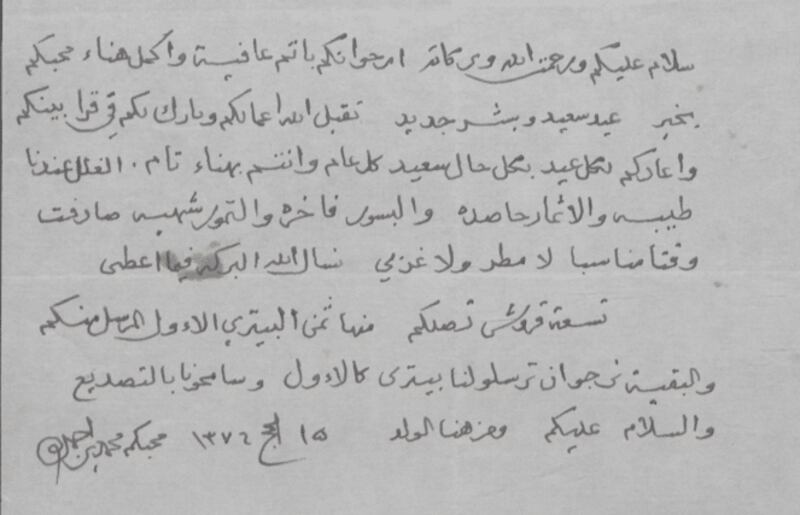 سلام عليكم ورحمة الله وبركاته ارجوا انكم باتم عافية واكمل هناء محبكم
بخير عيد سعيد وبشر جديد تقبل الله اعمالكم وبارك لكم في قرابينكم
واعادكم لكل عيد بكل حال سعيد كل عام وانتم بهناء تام . الغلل عندنا
طيبه والاثمار حاصده والبسور فاخره والتمور شهيه صادفت
وقتا مناسبا لا مطر ولا غربي نسال الله البركه فيما اعطى
تسعة قروش تصلكم منها ثمن البيتري الاول المرسل منكم
والبقية نرجوا ان ترسلو لنا بيتري كالاول وسامحونا بالتصديع
والسلام عليكم ومن هنا الولد ١٥ الحج ١٣٧٤ محبكم محمد بن احمد